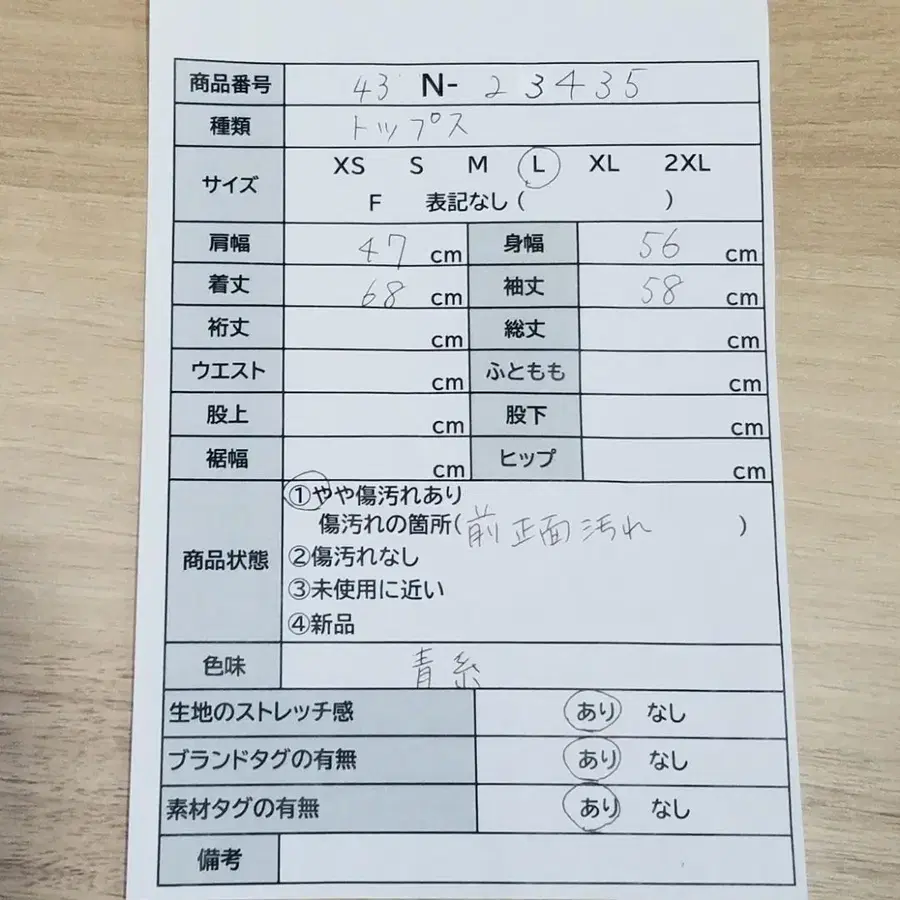 商品番号 43 N- 23435
種類 トップス
サイズ XS S M L XL 2XL
F 表記なし ( )
肩幅 47 cm 身幅 56 cm
着丈 68 cm 袖丈 58 cm
裄丈 cm 総丈 cm
ウエスト cm ふともも cm
股上 cm 股下 cm
裾幅 cm ヒップ cm
商品状態 ①やや傷汚れあり
傷汚れの箇所(前正面汚れ )
②傷汚れなし
③未使用に近い
④新品
色味 青系
生地のストレッチ感 あり なし
ブランドタグの有無 あり なし
素材タグの有無 あり なし
備考